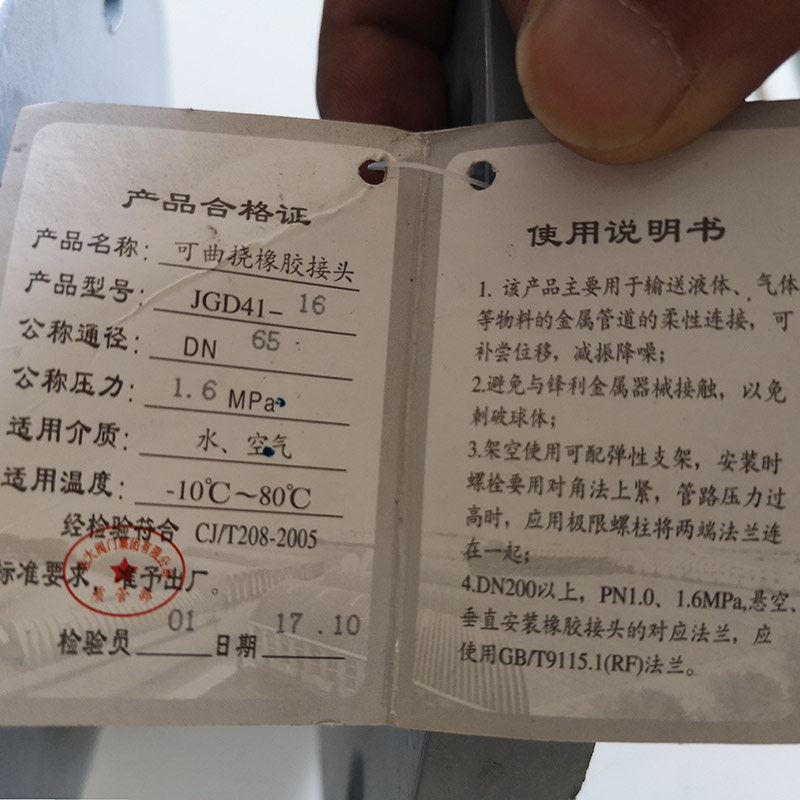 产品合格证
产品名称：可曲挠橡胶接头
产品型号：JGD41-16
公称通径：DN 65
公称压力：1.6 MPa
适用介质：水、空气
适用温度：-10℃～80℃
经检验符合 CJ/T208-2005
标准要求，准予出厂。
质管部
检验员 01 日期 17.10
使用说明书
1. 该产品主要用于输送液体、气体
等物料的金属管道的柔性连接，可
补尝位移，减振降噪；
2.避免与锋利金属器械接触，以免
刺破球体；
3.架空使用可配弹性支架，安装时
螺栓要用对角法上紧，管路压力过
高时，应用极限螺柱将两端法兰连
在一起；
4.DN200以上，PN1.0、1.6MPa,悬空、
垂直安装橡胶接头的对应法兰，应
使用GB/T9115.1(RF)法兰。